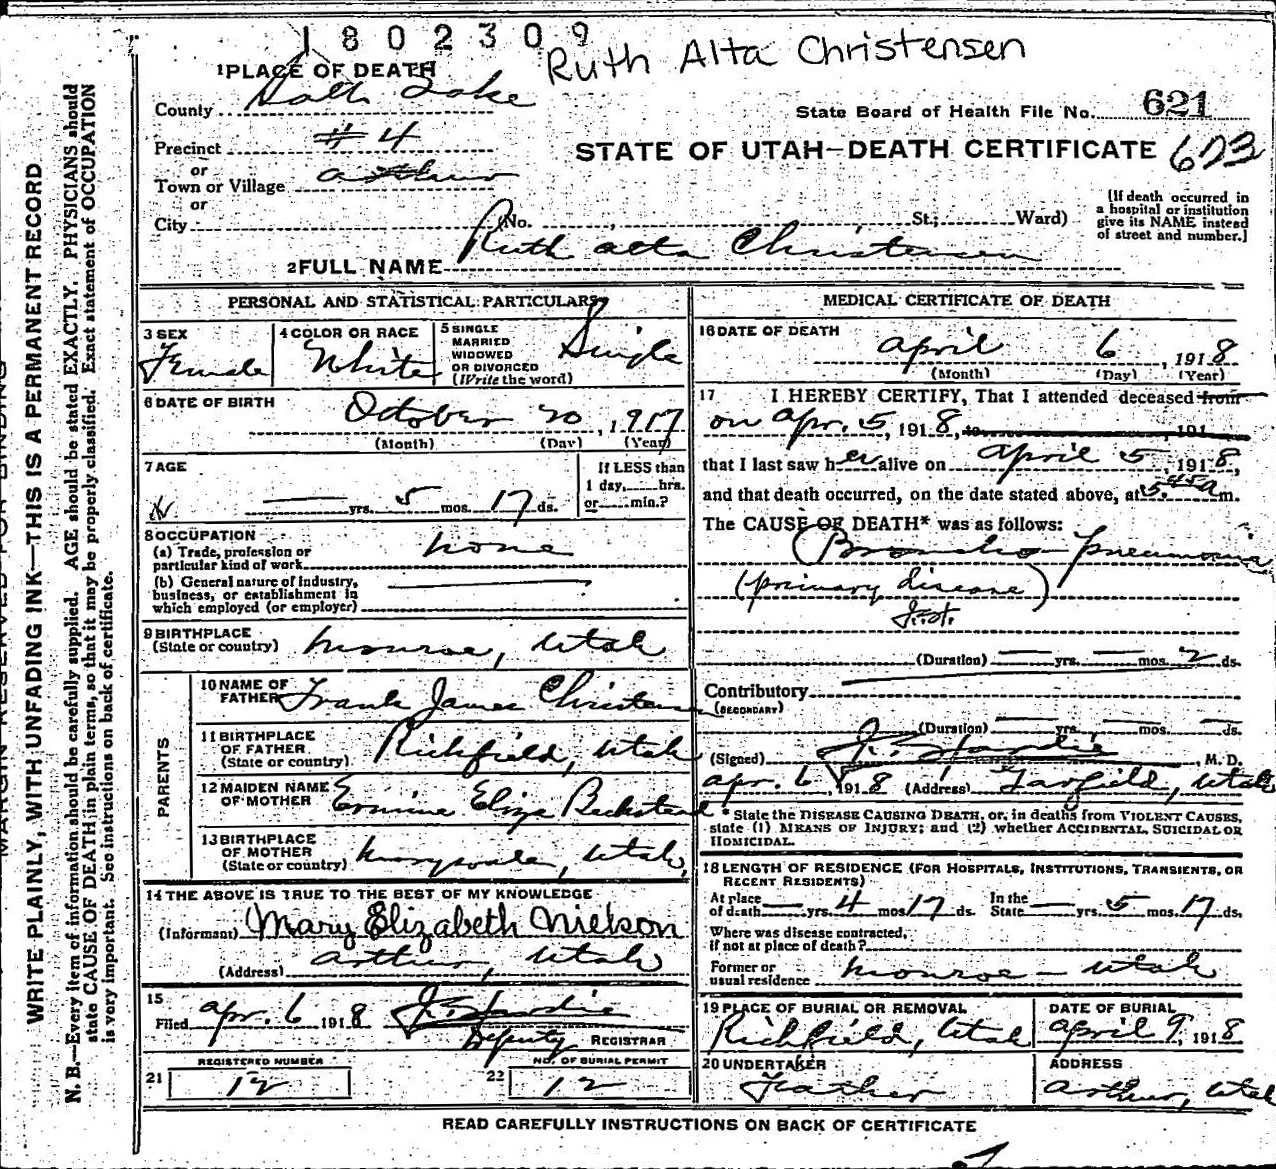 1802309
Ruth Alta Christensen
1 PLACE OF DEATH
County Salt Lake
State Board of Health File No. 621
Precinct #4
STATE OF UTAH—DEATH CERTIFICATE 623
or
Town or Village Arthur
or
City (No. St.; Ward)
[If death occurred in
a hospital or institution
give its NAME instead
of street and number.]
2 FULL NAME Ruth Alta Christensen
PERSONAL AND STATISTICAL PARTICULARS
3 SEX
Female
4 COLOR OR RACE
White
5 SINGLE
MARRIED
WIDOWED
OR DIVORCED
(Write the word)
Single
6 DATE OF BIRTH
October 20, 1917
(Month) (Day) (Year)
7 AGE
— yrs. 5 mos. 17 ds.
If LESS than
1 day, hrs.
or min.?
8 OCCUPATION
(a) Trade, profession or
particular kind of work none
(b) General nature of industry,
business, or establishment in
which employed (or employer)
9 BIRTHPLACE
(State or country) Monroe, Utah
PARENTS
10 NAME OF
FATHER Frank James Christensen
11 BIRTHPLACE
OF FATHER
(State or country) Richfield, Utah
12 MAIDEN NAME
OF MOTHER Ermine Eliza Beckstead
13 BIRTHPLACE
OF MOTHER
(State or country) Marysvale, Utah
14 THE ABOVE IS TRUE TO THE BEST OF MY KNOWLEDGE
(Informant) Mary Elizabeth Nielson
(Address) Arthur, Utah
15
Filed Apr. 6 1918 J. F. Hardie
Deputy REGISTRAR
REGISTERED NUMBER
21 12
NO. OF BURIAL PERMIT
22 12
MEDICAL CERTIFICATE OF DEATH
16 DATE OF DEATH
April 6, 1918
(Month) (Day) (Year)
17 I HEREBY CERTIFY, That I attended deceased from
on Apr. 5, 1918, to , 191
that I last saw her alive on April 5, 1918,
and that death occurred, on the date stated above, at 5.45 a m.
The CAUSE OF DEATH* was as follows:
Broncho-pneumonia
(primary disease)
(Duration) — yrs. — mos. 2 ds.
Contributory
(SECONDARY)
(Duration) — yrs. — mos. — ds.
(Signed) J. F. Hardie, M. D.
Apr. 6, 1918 (Address) Garfield, Utah
* State the DISEASE CAUSING DEATH, or, in deaths from VIOLENT CAUSES,
state (1) MEANS OF INJURY; and (2) whether ACCIDENTAL, SUICIDAL OR
HOMICIDAL.
18 LENGTH OF RESIDENCE (FOR HOSPITALS, INSTITUTIONS, TRANSIENTS, OR
RECENT RESIDENTS)
At place
of death — yrs. 4 mos 17 ds. In the
State — yrs. 5 mos. 17 ds.
Where was disease contracted,
if not at place of death?
Former or
usual residence Monroe — Utah
19 PLACE OF BURIAL OR REMOVAL
Richfield, Utah
DATE OF BURIAL
April 9, 1918
20 UNDERTAKER
Father
ADDRESS
Arthur, Utah
READ CAREFULLY INSTRUCTIONS ON BACK OF CERTIFICATE
WRITE PLAINLY, WITH UNFADING INK—THIS IS A PERMANENT RECORD
N. B.—Every item of information should be carefully supplied. AGE should be stated EXACTLY. PHYSICIANS should
state CAUSE OF DEATH in plain terms, so that it may be properly classified. Exact statement of OCCUPATION
is very important. See instructions on back of certificate.